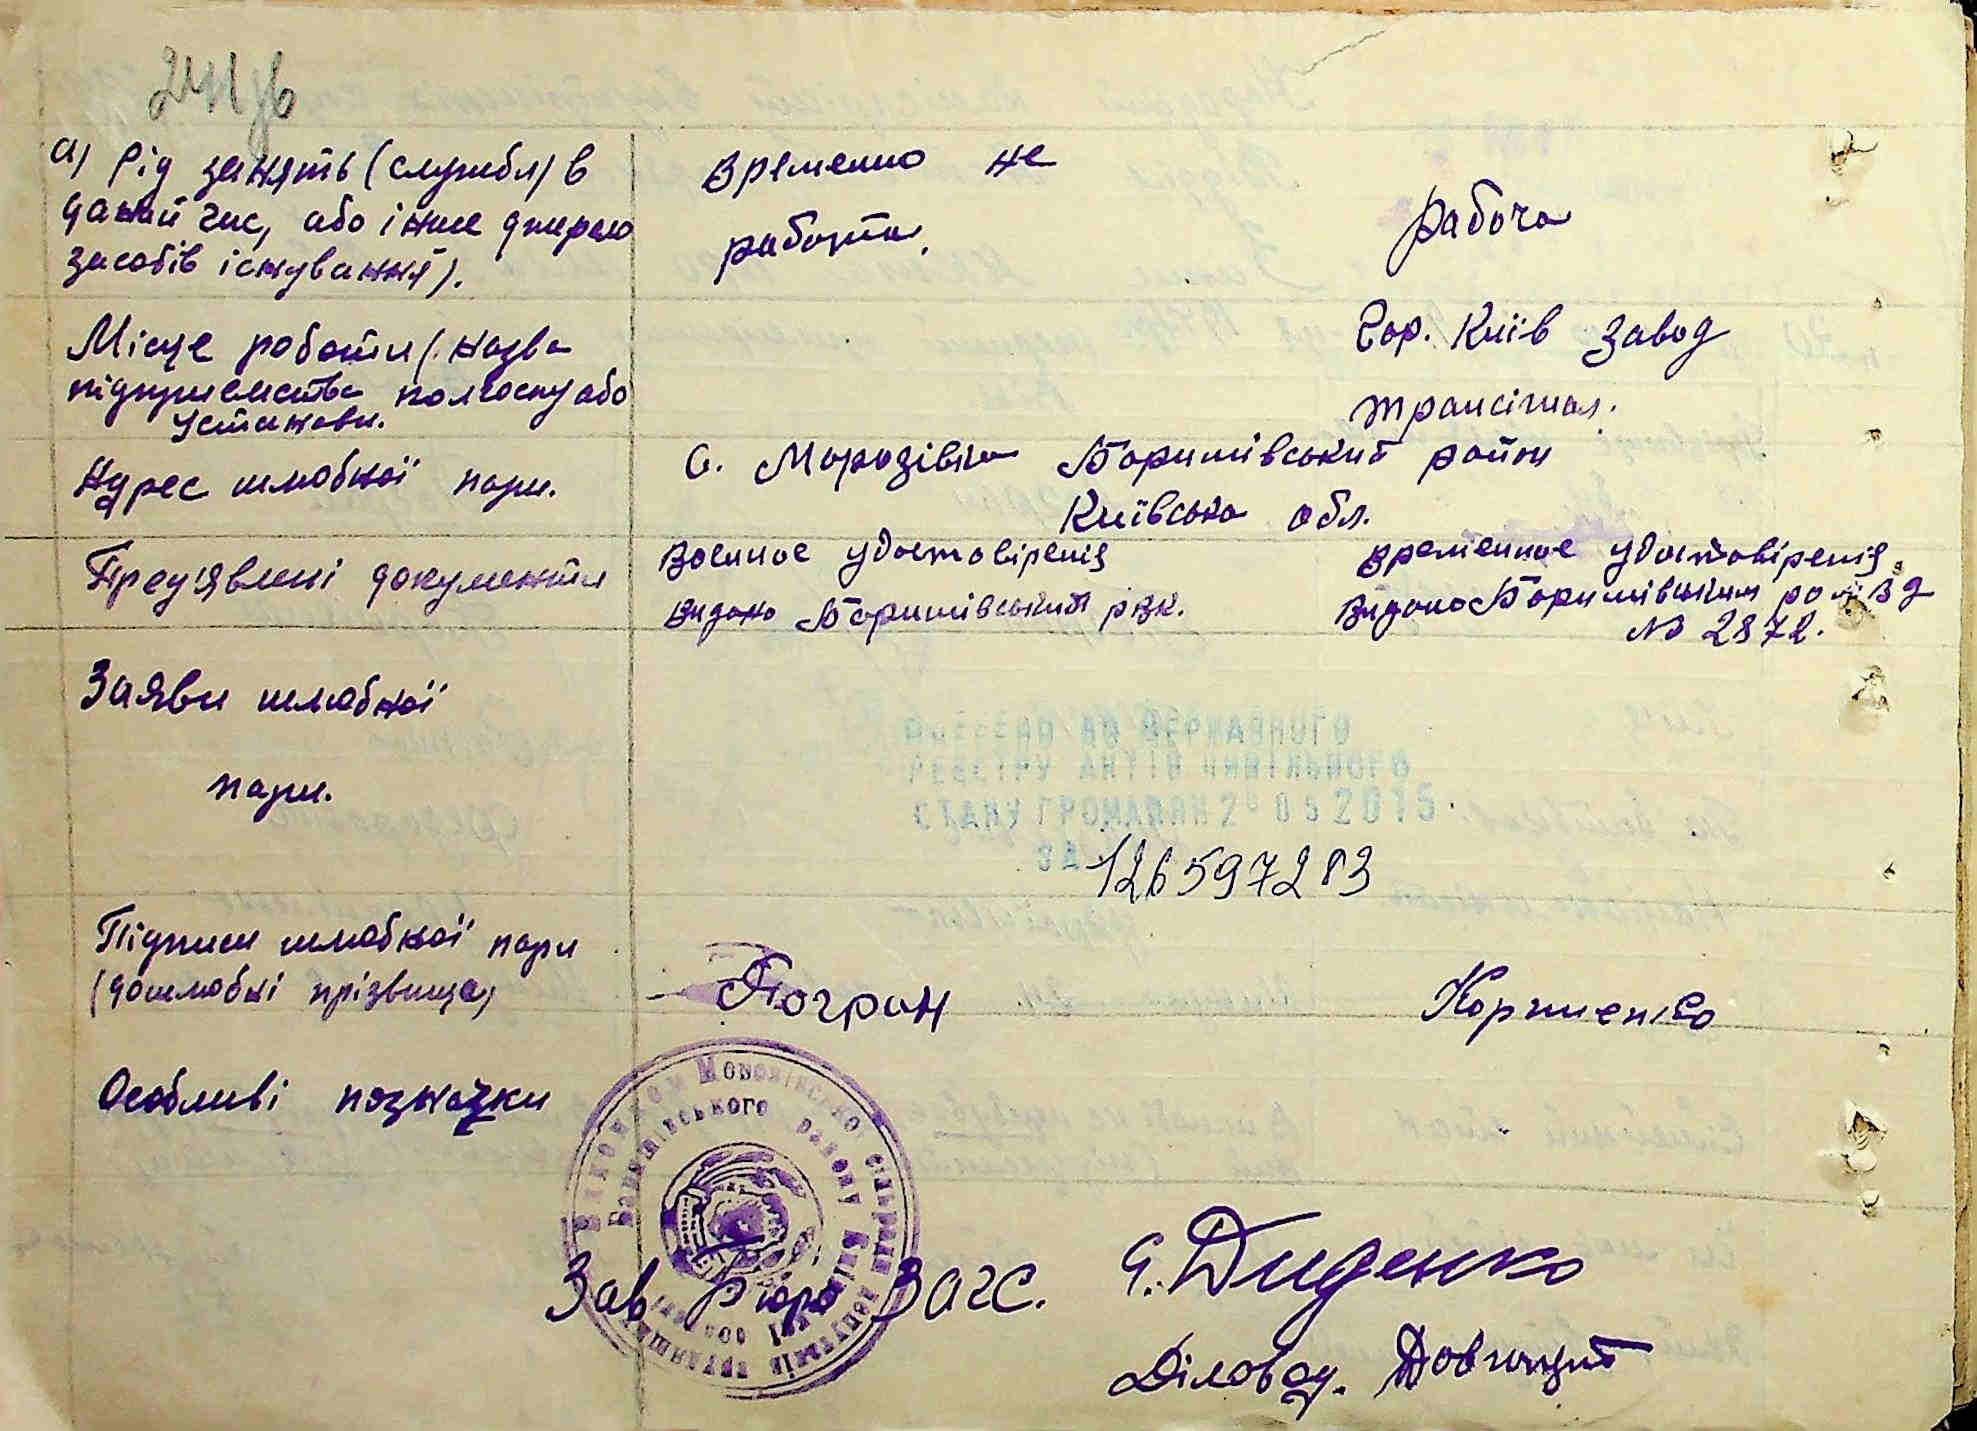 а) Рід занять (служби) в
даний час, або інше джерело
засобів існування).
временно не
работал.
Рабоча
Місце роботи (назва
підприємства колгоспу або
установи.
Гор. Київ завод
Трансігнал.
Адрес шлюбної пари.
с. Морозівка Баришівський район
Київська обл.
Пред'явлені документи
Военное удостовіренія
видано Баришівський рвк.
временное удостовіренія
видано Баришівським
№ 2872.
Заяви шлюбної
пари.
ДО ДЕРЖАВНОГО
РЕЄСТРУ АКТІВ ЦИВІЛЬНОГО
СТАНУ ГРОМАДЯН 05 2015
ЗА
126597283
Підписи шлюбної пари
(дошлюбні прізвища)
Погран
Корниенко
Особливі позначки
Виконком Морозівської сільради депутатів трудящих
Баришівського району Київської області
Зав Бюро Загс. Диденко
Діловод.